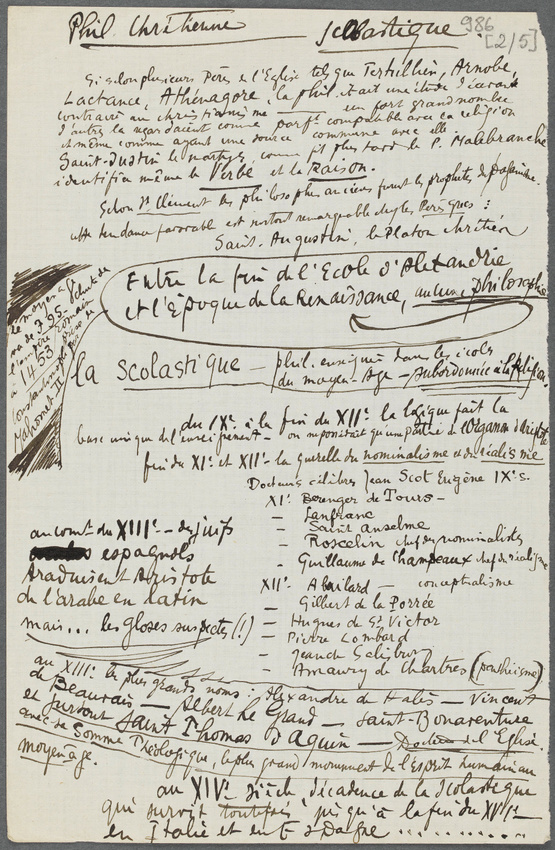 Phil. Chrétienne — Scolastique
986
[2/5]
Si selon plusieurs Pères de l'Eglise tels que Tertullien, Arnobe,
Lactance, Athénagore, la phil. était une étude
contraire au christianisme — un fort grand nombre
d'autres la regardaient comme parft compatible avec la religion
et même comme ayant une source commune avec elle
Saint-Justin le martyr, comme fit plus tard le P. Malebranche
identifia même le Verbe et la Raison.
Selon St Clément les philosophes anciens furent les prophètes du paganisme.
cette tendance favorable est surtout remarquable chez les Pères Grecs :
Saint-Augustin, le Platon chrétien
Entre la fin de l'Ecole d'Alexandrie
et l'Epoque de la Renaissance, aucune philosophie
le moyen-âge
va de 395
l'empire romain
à 1453
Constantinople
Mahomet II
la scolastique — phil. enseignée dans les écoles
du moyen-Age — subordonnée à la Religion
du IXe à la fin du XIIe la logique fait la
base unique de l'enseignement — on ne possédait qu'une partie de l'Organon d'Aristote
fin du XIe et XIIe la querelle du nominalisme et du réalisme
Docteurs célèbres Jean Scot Eugène IXe s.
XIe Berenger de Tours —
— Lanfranc
— Saint Anselme
— Roscelin chef des nominalistes
— Guillaume de Champeaux chef du réalisme
XIIe Abailard — conceptualisme
— Gilbert de la Porrée
— Hugues de St Victor
— Pierre Lombard
— Jean de Salisbury
— Amaury de Chartres (panthéisme)
au court du XIIIe — des juifs
espagnols
traduisent Aristote
de l'arabe en latin
mais... les gloses suspectes (!)
au XIIIe les plus grands noms : Alexandre de Halès — Vincent
de Beauvais — Albert le Grand — Saint-Bonaventure
et surtout Saint Thomas d'Aquin — Docteur de l'Eglise.
avec sa Somme Théologique, le plus grand monument de l'Esprit humain au
moyen age.
au XIVe siècle décadence de la Scolastique
qui survit toutefois jusqu'à la fin du XVIe
en Italie et en Espagne ..........